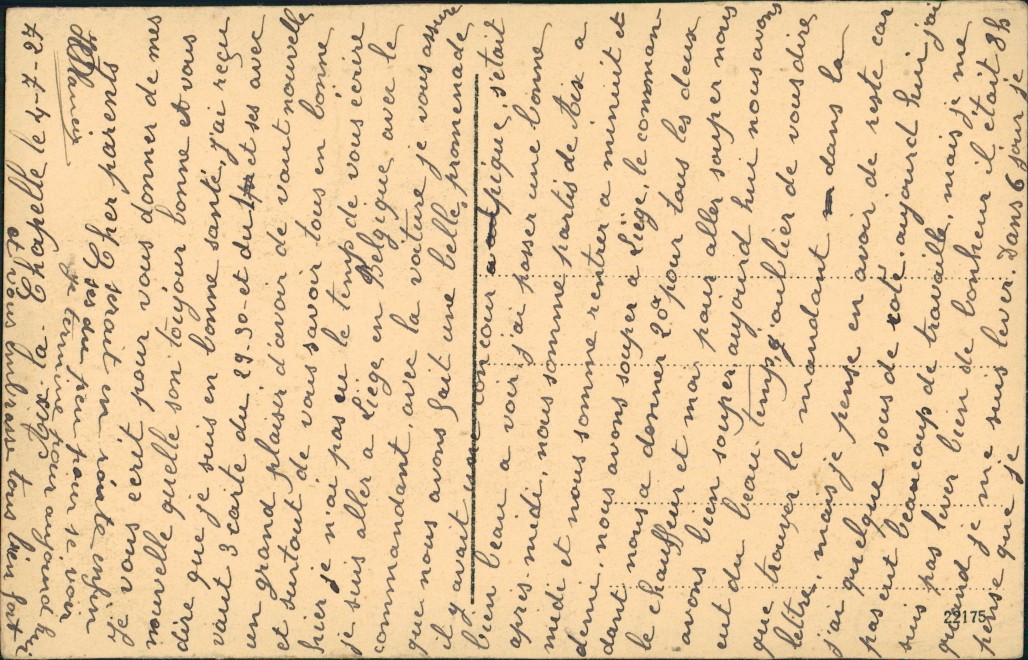 Aix la Chapelle le 4-7-24
Cher parents
Je vous ecrit pour vous donner de mes
nouvelle quelle son toujour bonne et vous
dire que je suis en bonne santé, j'ai reçu
vaut 3 carte du 29-30 et du et ses avec
un grand plaisir d'avoir de vaut nouvelle
et surtout de vous savoir tous en bonne
hier je n'ai pas eu le temp de vous ecrire
je suis aller a Liège en Belgique avec le
commandant, avec la voiture je vous assure
que nous avons fait une belle promenade
il y avait une concour s'etait
bien beau a voir j'ai passer une bonne
apres midi, nous somme partis de Aix a
midi et nous somme rentrer a minuit et
demi, nous avons souper a Liège, le comman
dant nous a donner 20 pour tous les deux
le chauffeur et moi pour aller souper nous
avons bien souper aujourd hui nous avons
eut du beau temp, j'oublier de vous dire
que trouver le mandant dans la
lettre, mais je pense en avoir de reste car
j'ai quelque sous de coté, aujourd hui j'ai
pas eut beaucoup de travaille, mais je me
suis pas lever bien de bonheur il était 8h
quand je me suis lever. Dans 6 jour je
pense que je
serait en route enfin
peu pour se voir
je termine pour aujourd hui
et vous embrasse tous bien fort
22175